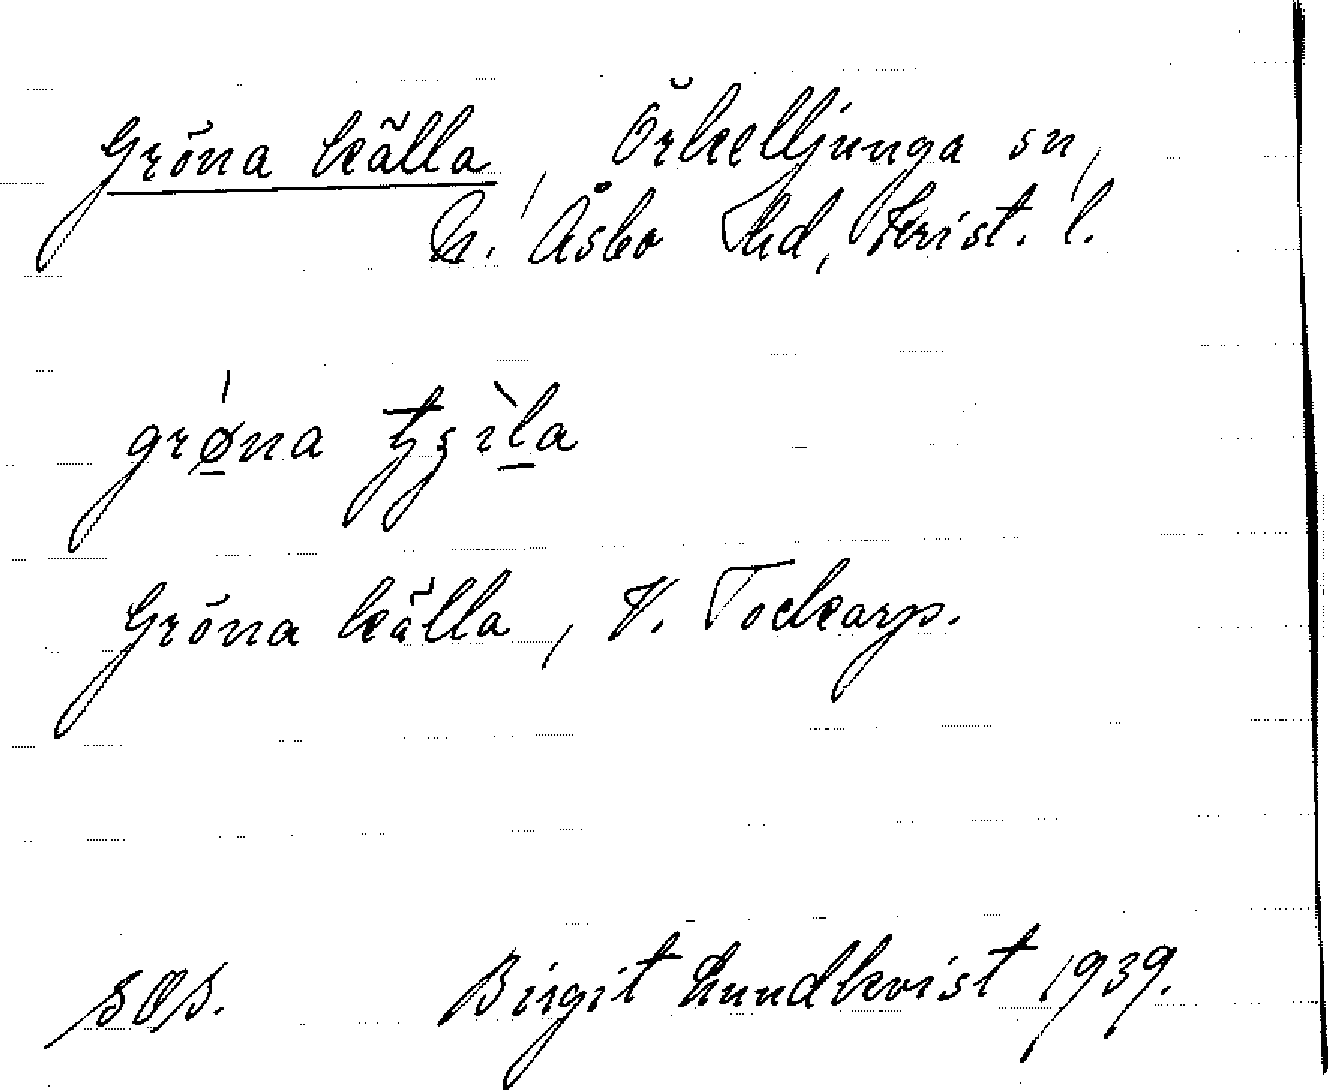 Gröna källa, Örkelljunga sn,
N. Åsbo Hd, Krist. l.
Gröna källa, V. Tockarp.
Birgit Lundkvist 1939.